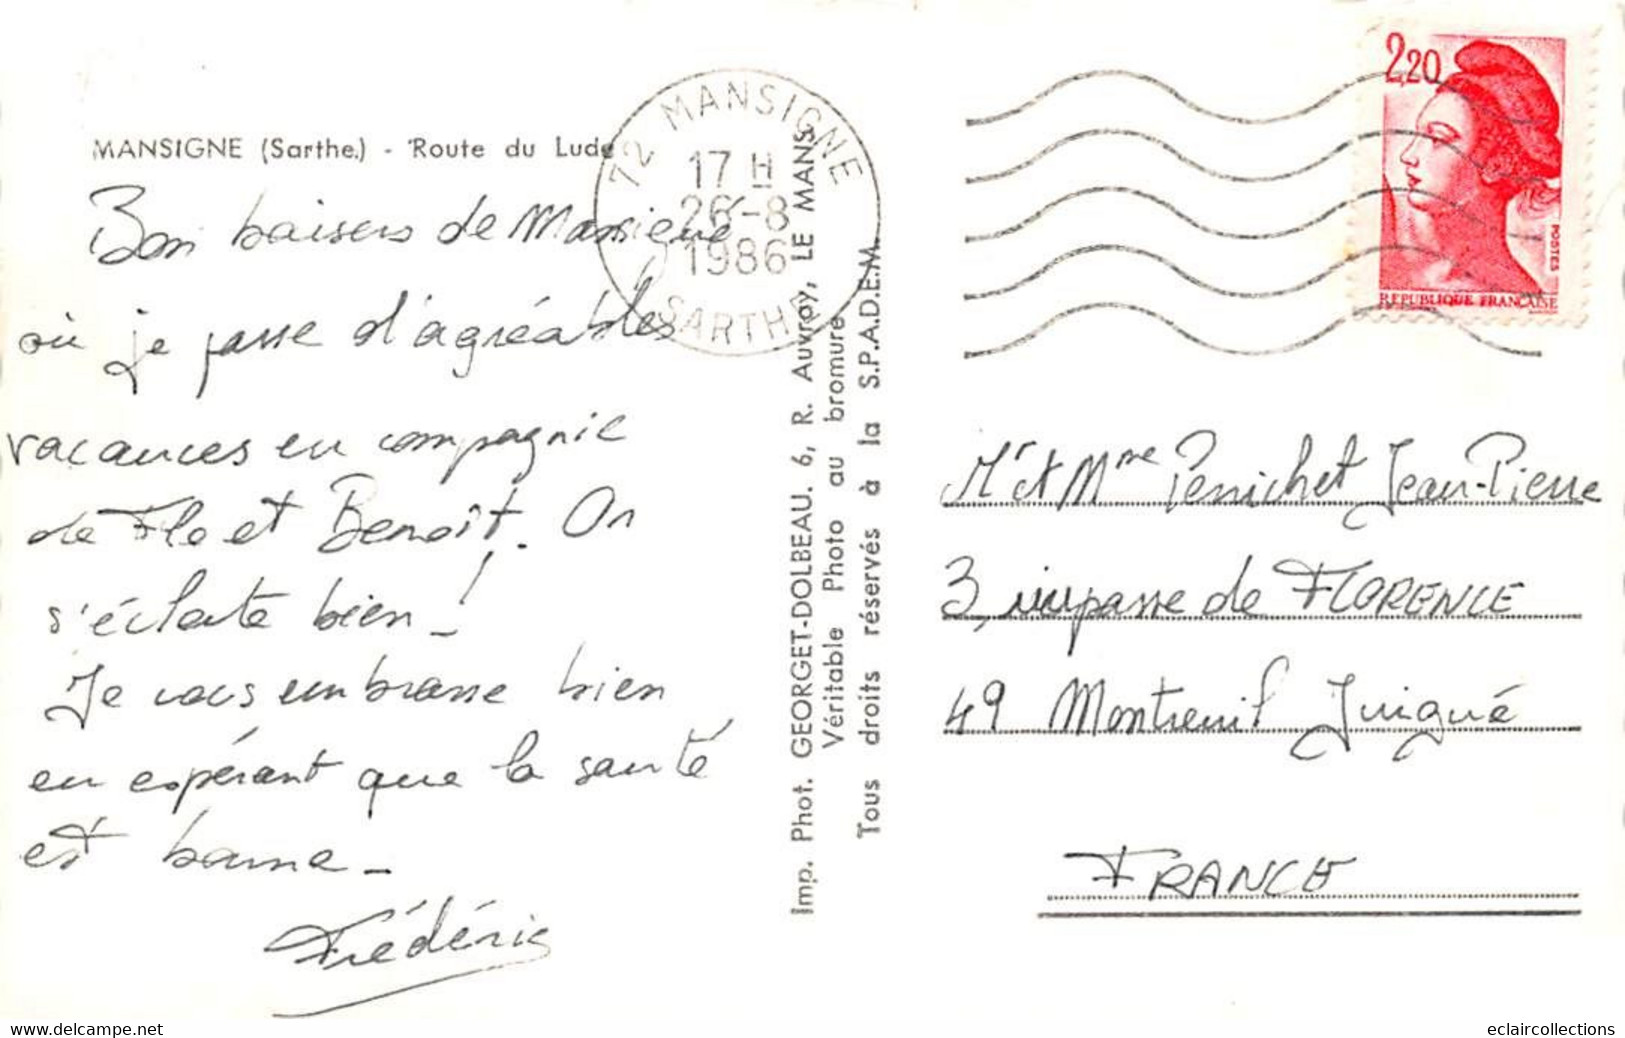 MANSIGNE (Sarthe.) - Route du Lude
Bon baisers de Mansigné
où je passe d'agréables
vacances en compagnie
de Flo et Benoît. On
s'éclate bien !
Je vous embrasse bien
en espérant que la santé
est bonne -
Frédéric
72 MANSIGNE
17 H
26-8
1986
SARTHE
Imp. Phot. GEORGET-DOLBEAU. 6, R. Auvray, LE MANS
Véritable Photo au bromure
Tous droits réservés à la S.P.A.D.E.M.
2,20
POSTES
REPUBLIQUE FRANÇAISE
Mr et Mme Penichet Jean-Pierre
3, impasse de FLORENCE
49 Montreuil Juigné
FRANCE
www.delcampe.net
eclaircollections